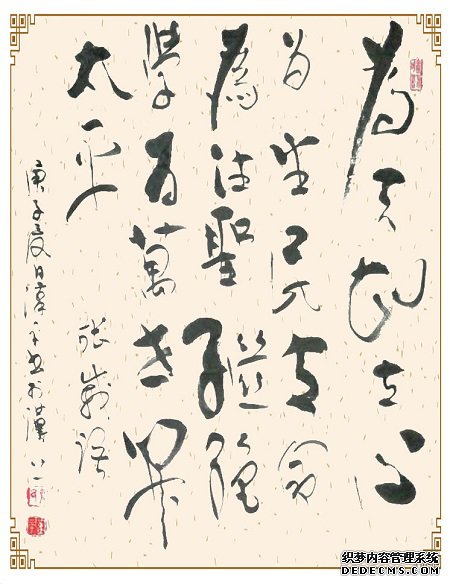 為天地立心
为生民立命
為往聖繼絕
學为萬世開
太平
張載語
庚子夏日漢平书於漢
织梦内容管理系统
DEDECMS.COM